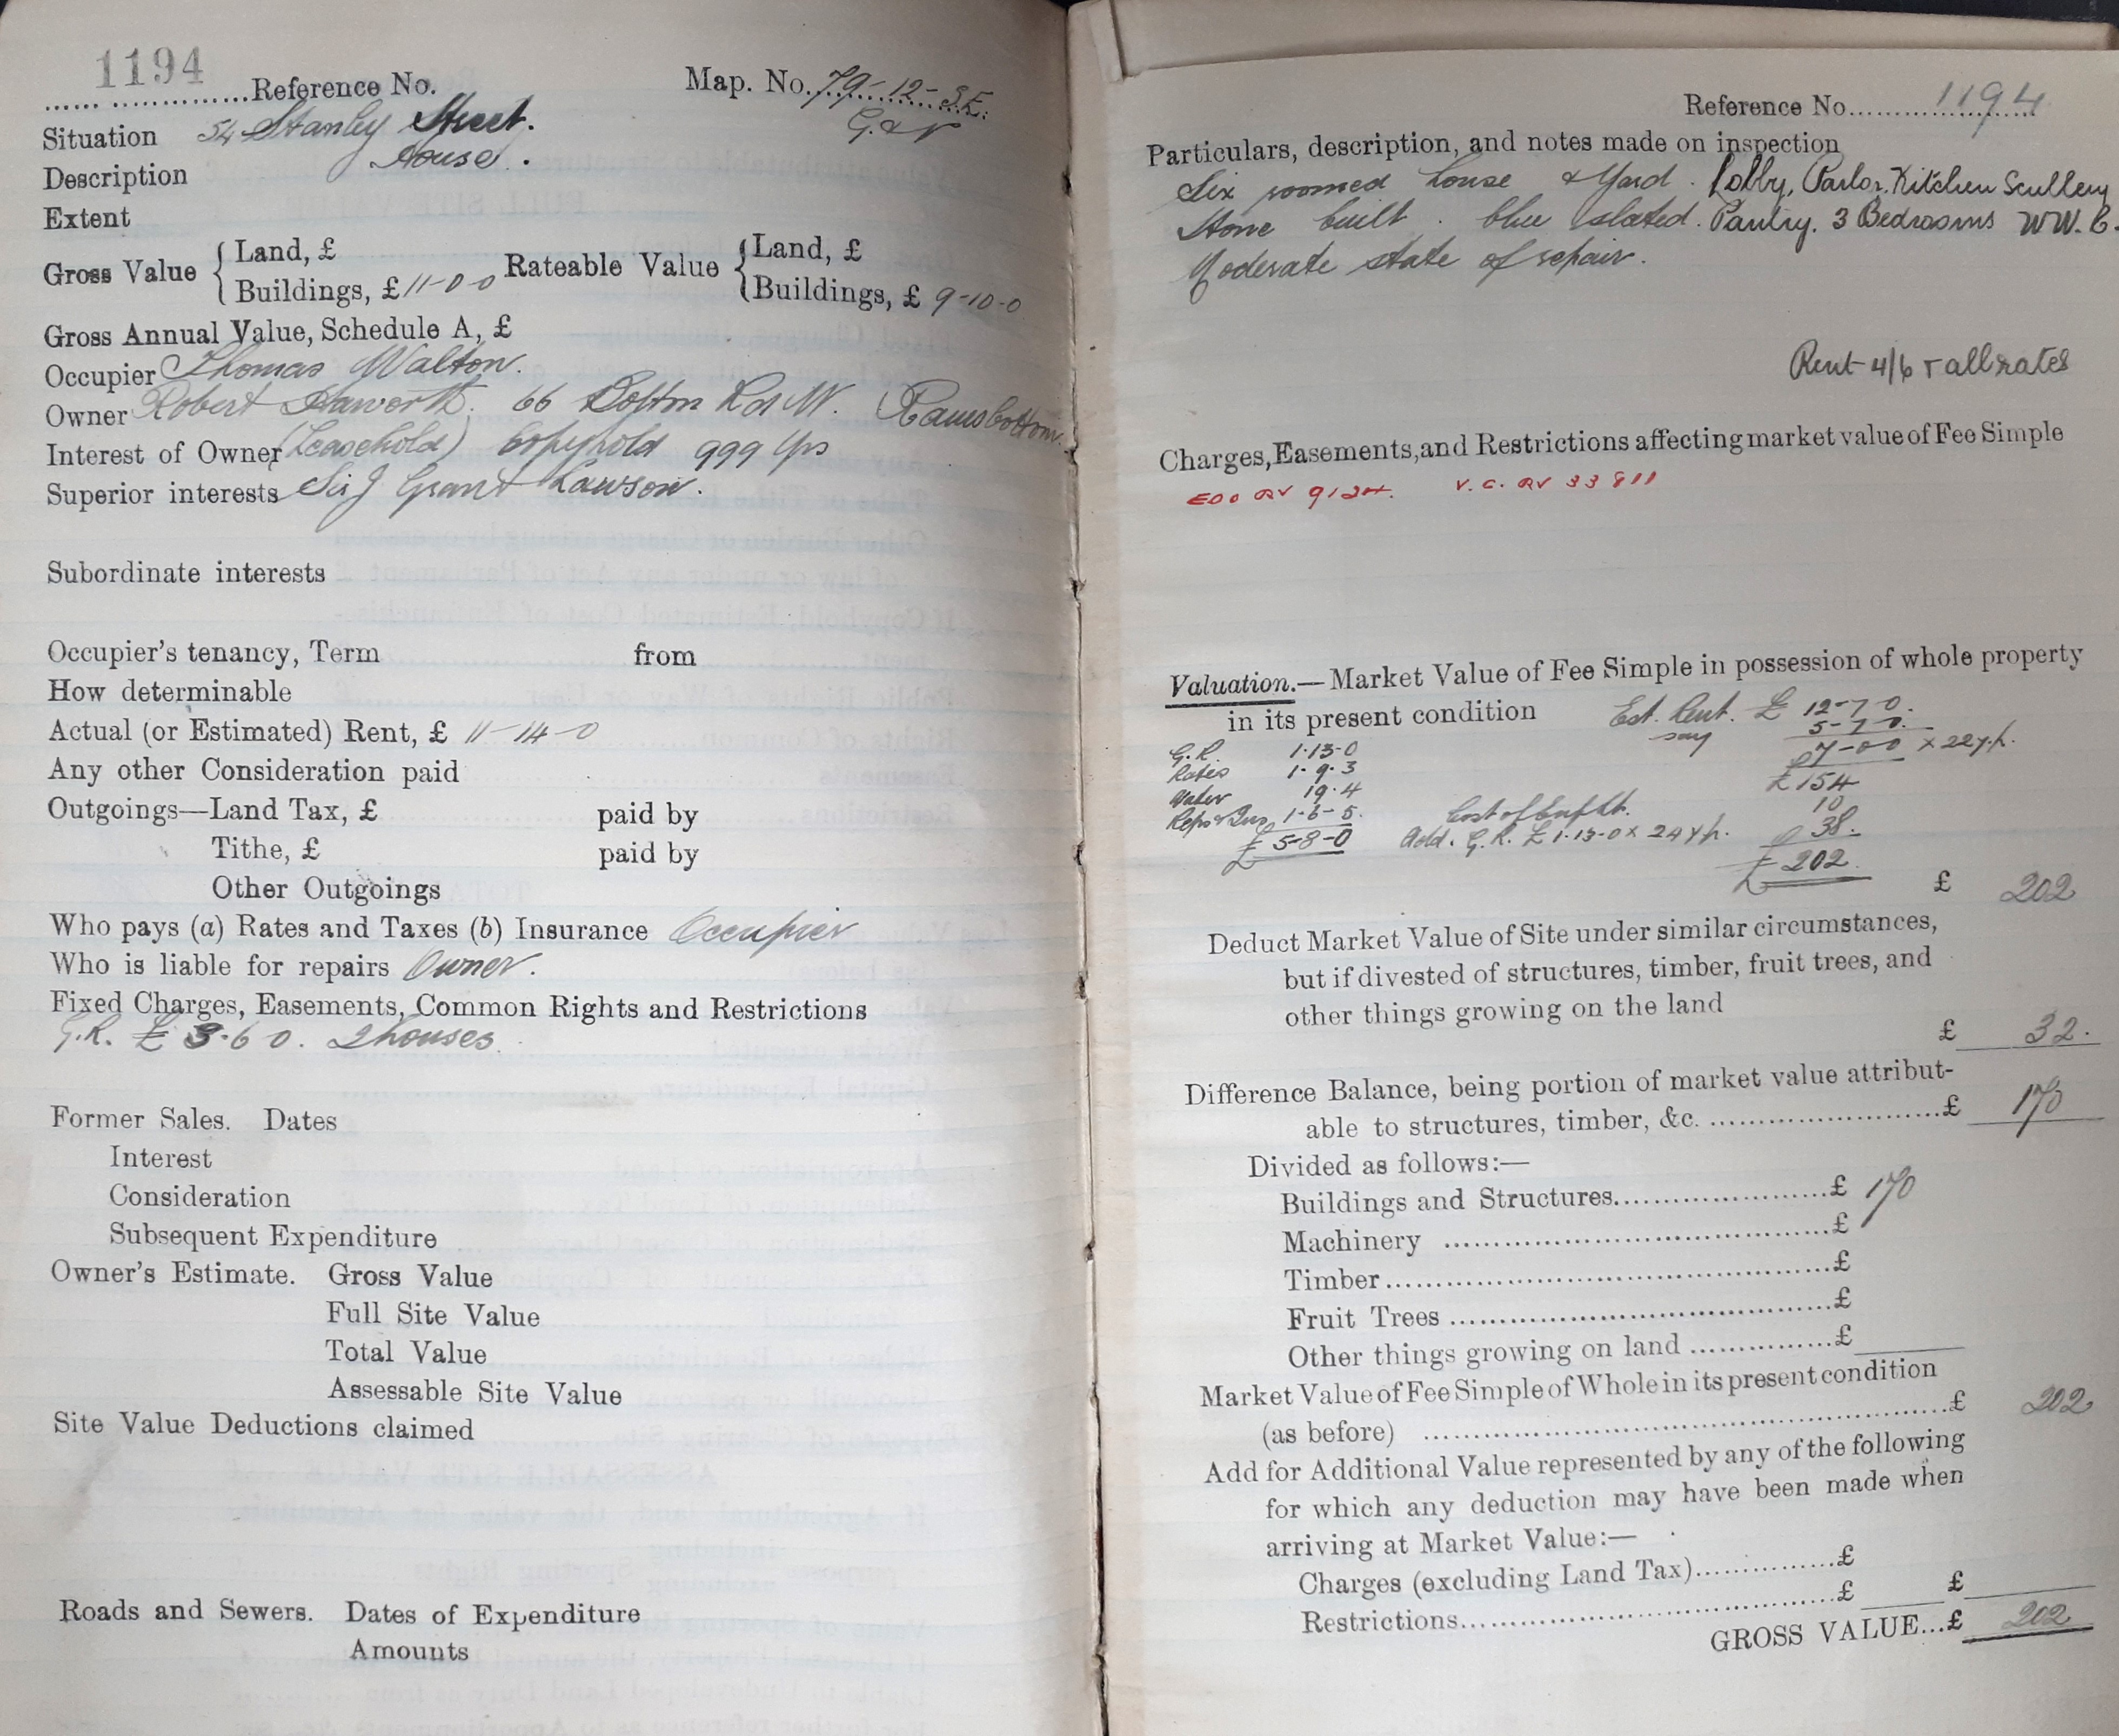 1194
Reference No. Map. No. 79-12-S.E.
Situation 54 Stanley Street. G. & V
Description House.
Extent
Gross Value { Land, £ Rateable Value { Land, £
Buildings, £ 11-0-0 Buildings, £ 9-10-0
Gross Annual Value, Schedule A, £
Occupier Thomas Walton.
Owner Robert Haworth. 66 Bolton Rd W. Ramsbottom.
Interest of Owner (Leasehold) Copyhold 999 yrs
Superior interests Sir J Grant Lawson.
Subordinate interests
Occupier's tenancy, Term from
How determinable
Actual (or Estimated) Rent, £ 11-14-0
Any other Consideration paid
Outgoings—Land Tax, £ paid by
Tithe, £ paid by
Other Outgoings
Who pays (a) Rates and Taxes (b) Insurance Occupier
Who is liable for repairs Owner.
Fixed Charges, Easements, Common Rights and Restrictions
G.R. £ 3.6 0. 2 houses.
Former Sales. Dates
Interest
Consideration
Subsequent Expenditure
Owner's Estimate. Gross Value
Full Site Value
Total Value
Assessable Site Value
Site Value Deductions claimed
Roads and Sewers. Dates of Expenditure
Amounts
Reference No. 1194
Particulars, description, and notes made on inspection
Six roomed house & Yard. Lobby, Parlor, Kitchen Scullery
Stone built. blue slated. Pantry. 3 Bedrooms WW.C.
Moderate state of repair.
Rent 4/6 + all rates
Charges, Easements, and Restrictions affecting market value of Fee Simple
V.C. 33811
Valuation.—Market Value of Fee Simple in possession of whole property
in its present condition Est. Rent. £ 12-7-0.
say 5-7-0.
G.R. 1.13-0 7-0-0 x 22 y.p.
Rates 1.9.3 £154
Water 19.4 Cost of Enfcht. 10
Reps & Ins. 1-6-5. Add. G.R. £1.13-0 x 24 y.p. 38.
£ 5-8-0 £ 202
£ 202
Deduct Market Value of Site under similar circumstances,
but if divested of structures, timber, fruit trees, and
other things growing on the land
£ 32.
Difference Balance, being portion of market value attribut-
able to structures, timber, &c. £ 170
Divided as follows:—
Buildings and Structures £ 170
Machinery £
Timber £
Fruit Trees £
Other things growing on land £
Market Value of Fee Simple of Whole in its present condition
(as before) £ 202
Add for Additional Value represented by any of the following
for which any deduction may have been made when
arriving at Market Value:—
Charges (excluding Land Tax) £
Restrictions £ £
GROSS VALUE...£ 202